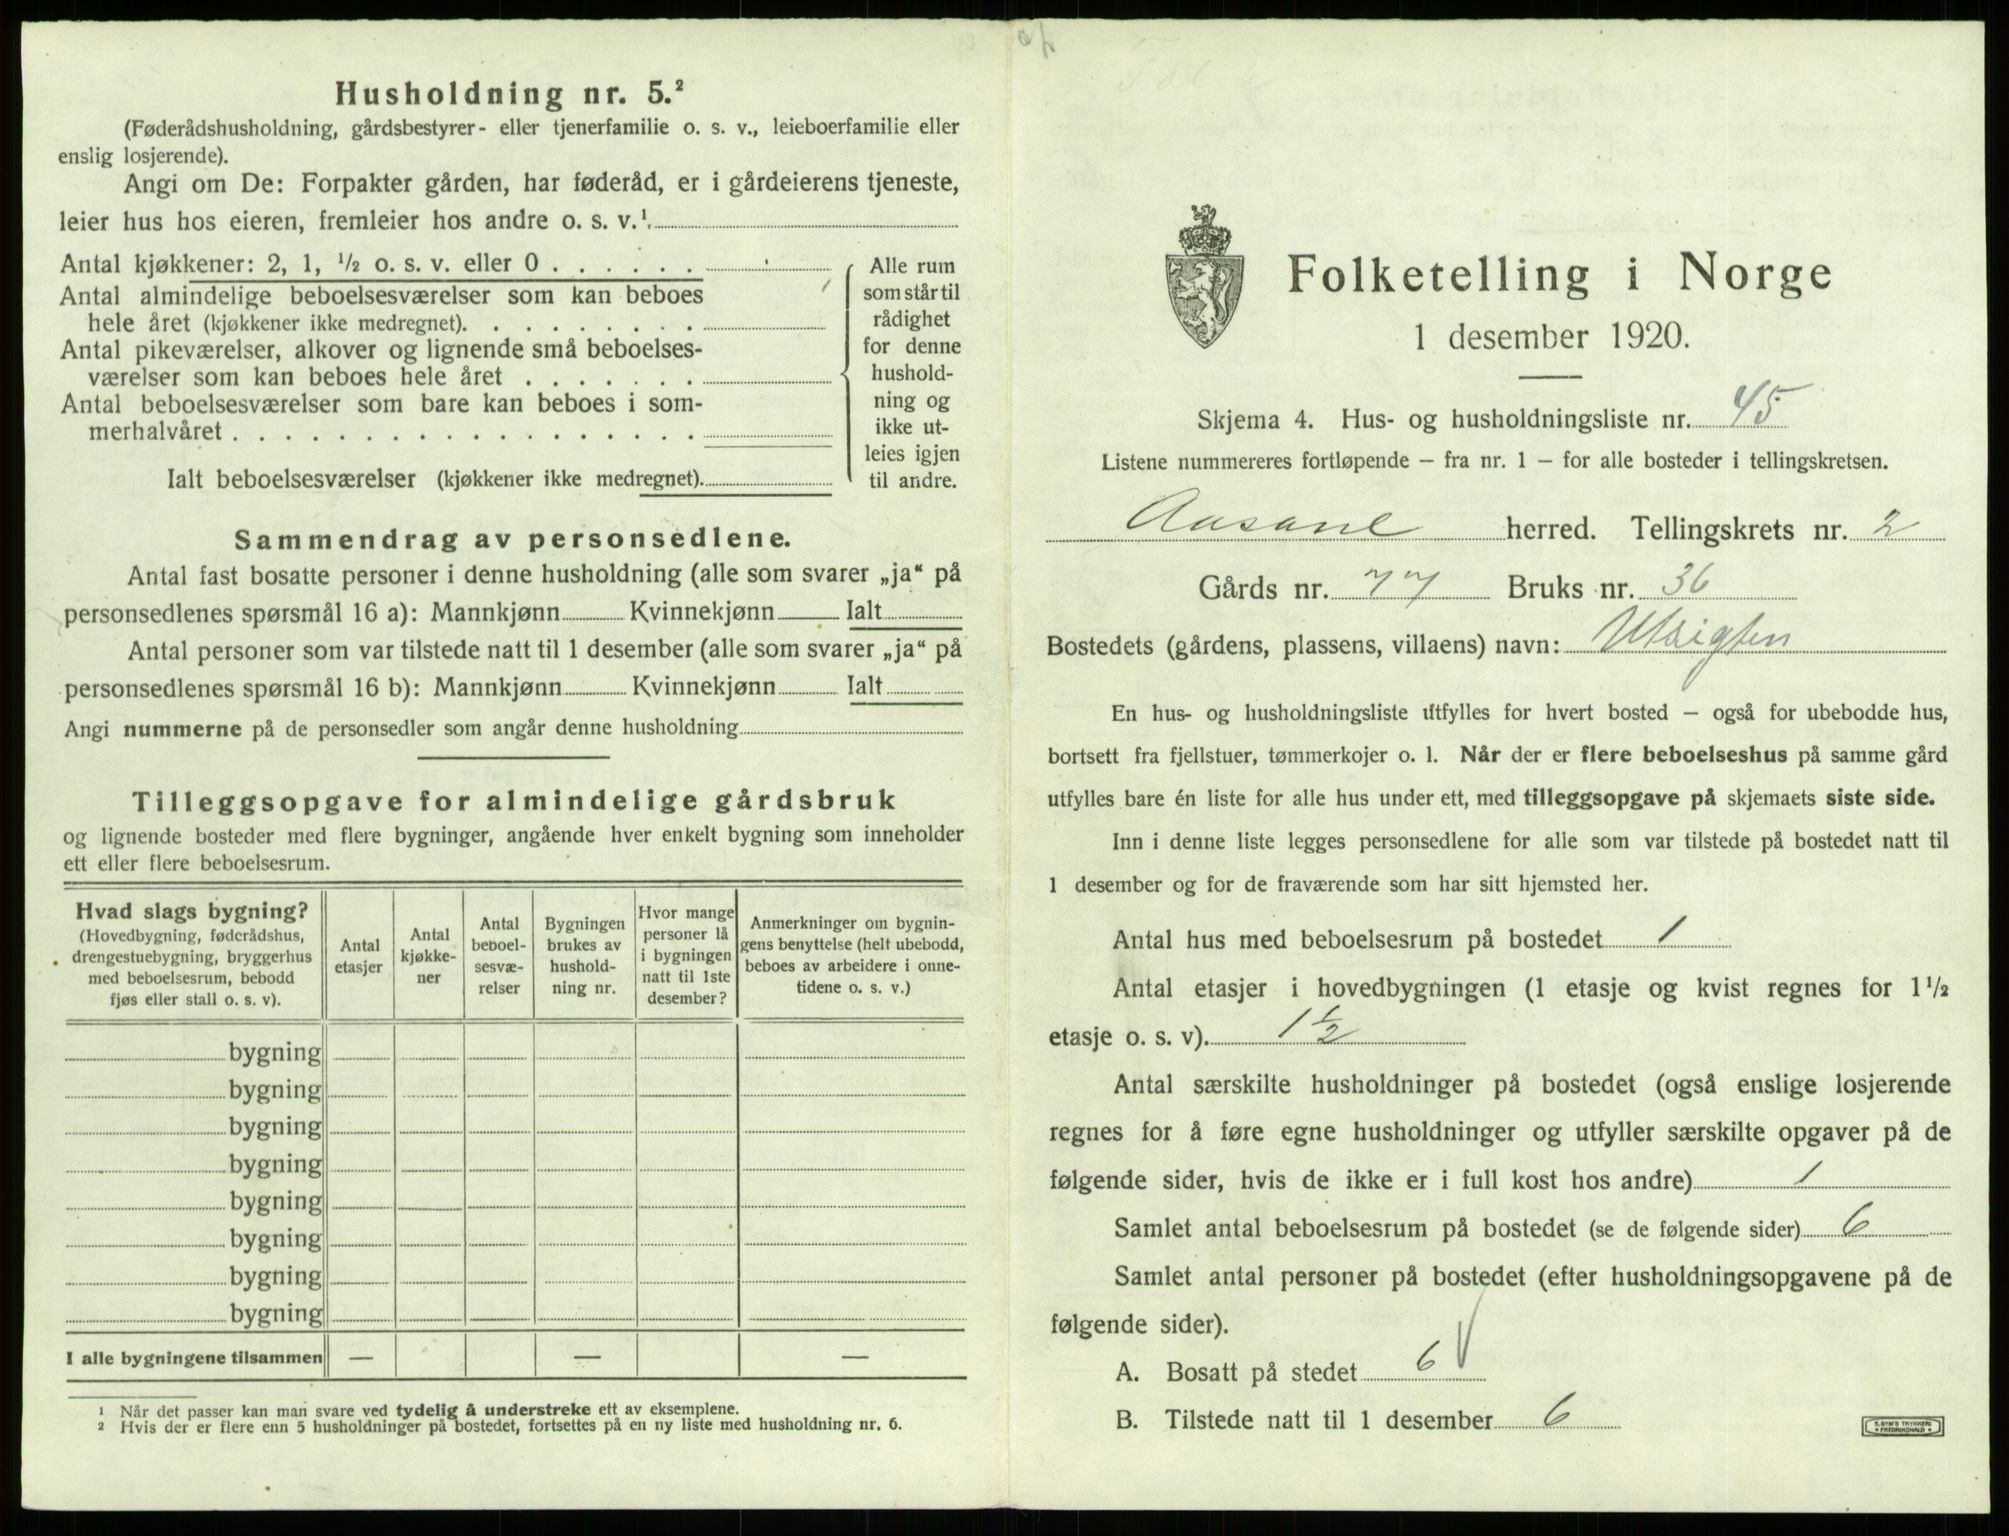 Husholdning nr. 5.²
(Føderådshusholdning, gårdsbestyrer- eller tjenerfamilie o. s. v., leieboerfamilie eller
enslig losjerende).
Angi om De: Forpakter gården, har føderåd, er i gårdeierens tjeneste,
leier hus hos eieren, fremleier hos andre o. s. v.¹.
Antal kjøkkener: 2, 1, ½ o. s. v. eller 0 . . . . . .
Antal almindelige beboelsesværelser som kan beboes
hele året (kjøkkener ikke medregnet). . . . . . . . .
Antal pikeværelser, alkover og lignende små beboelses-
værelser som kan beboes hele året . . . . . . .
Antal beboelsesværelser som bare kan beboes i som-
merhalvåret . . . . . . . . . . . . . . . . . .
Ialt beboelsesværelser (kjøkkener ikke medregnet).
Alle rum
som står til
rådighet
for denne
hushold-
ning og
ikke ut-
leies igjen
til andre.
Sammendrag av personsedlene.
Antal fast bosatte personer i denne husholdning (alle som svarer „ja“ på
personsedlenes spørsmål 16 a): Mannkjønn Kvinnekjønn Ialt
Antal personer som var tilstede natt til 1 desember (alle som svarer „ja“ på
personsedlenes spørsmål 16 b): Mannkjønn Kvinnekjønn Ialt
Angi nummerne på de personsedler som angår denne husholdning
Tilleggsopgave for almindelige gårdsbruk
og lignende bosteder med flere bygninger, angående hver enkelt bygning som inneholder
ett eller flere beboelsesrum.
Hvad slags bygning?
(Hovedbygning, føderådshus,
drengestuebygning, bryggerhus
med beboelsesrum, bebodd
fjøs eller stall o. s. v).
Antal
etasjer
Antal
kjøkke-
ner
Antal
beboel-
sesvæ-
relser
Bygningen
brukes av
hushold-
ning nr.
Hvor mange
personer lå
i bygningen
natt til 1ste
desember?
Anmerkninger om bygnin-
gens benyttelse (helt ubebodd,
beboes av arbeidere i onne-
tidene o. s. v.)
bygning
bygning
bygning
bygning
bygning
bygning
bygning
bygning
I alle bygningene tilsammen — — —
¹ Når det passer kan man svare ved tydelig å understreke ett av eksemplene.
² Hvis der er flere enn 5 husholdninger på bostedet, fortsettes på en ny liste med husholdning nr. 6.
Folketelling i Norge
1 desember 1920.
Skjema 4. Hus- og husholdningsliste nr. 45
Listene nummereres fortløpende – fra nr. 1 – for alle bosteder i tellingskretsen.
Aasane herred. Tellingskrets nr. 2
Gårds nr. 77 Bruks nr. 36
Bostedets (gårdens, plassens, villaens) navn: Utsigten
En hus- og husholdningsliste utfylles for hvert bosted – også for ubebodde hus,
bortsett fra fjellstuer, tømmerkojer o. l. Når der er flere beboelseshus på samme gård
utfylles bare én liste for alle hus under ett, med tilleggsopgave på skjemaets siste side.
Inn i denne liste legges personsedlene for alle som var tilstede på bostedet natt til
1 desember og for de fraværende som har sitt hjemsted her.
Antal hus med beboelsesrum på bostedet 1
Antal etasjer i hovedbygningen (1 etasje og kvist regnes for 1½
etasje o. s. v). 1½
Antal særskilte husholdninger på bostedet (også enslige losjerende
regnes for å føre egne husholdninger og utfyller særskilte opgaver på de
følgende sider, hvis de ikke er i full kost hos andre) 1
Samlet antal beboelsesrum på bostedet (se de følgende sider) 6
Samlet antal personer på bostedet (efter husholdningsopgavene på de
følgende sider).
A. Bosatt på stedet 6
B. Tilstede natt til 1 desember 6
E. SEM'S TRYKKERI
FREDRIKSHALD